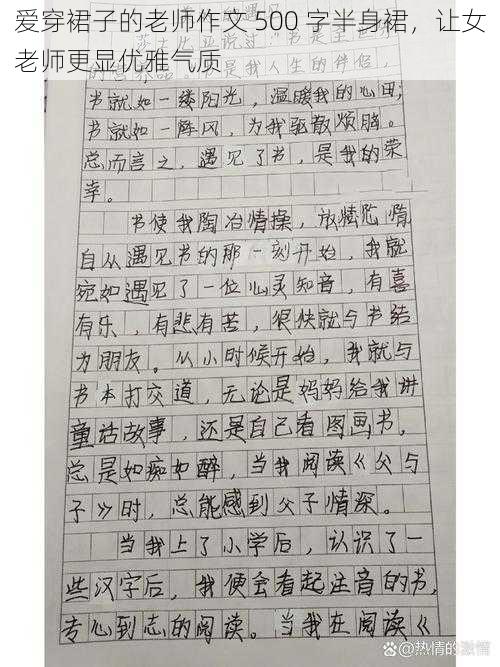 爱穿裙子的老师作文 500 字半身裙，让女
老师更显优雅气质
莎士比亚说过："书是全世界
的营养品。"书是我人生的伴侣，
书就如一缕阳光，温暖我的心田；
书就如一阵风，为我驱散烦脑。
总而言之，遇见了书，是我的荣
幸。
书使我陶冶情操，放怯陀情
自从遇见书的那一刻开始，我就
宛如遇见了一位心灵知音，有喜
有乐，有悲有苦，很快就与书结
为朋友。从小时候开始，我就与
书本打交道，无论是妈妈给我讲
童话故事，还是自己看图画书，
总是如痴如醉，当我阅读《父与
子》时，总能感到父子情深。
当我上了小学后，认识了一
些汉字后，我便会看起注音的书，
专心到志的阅读。当我在阅读《
百家号@热情的激情